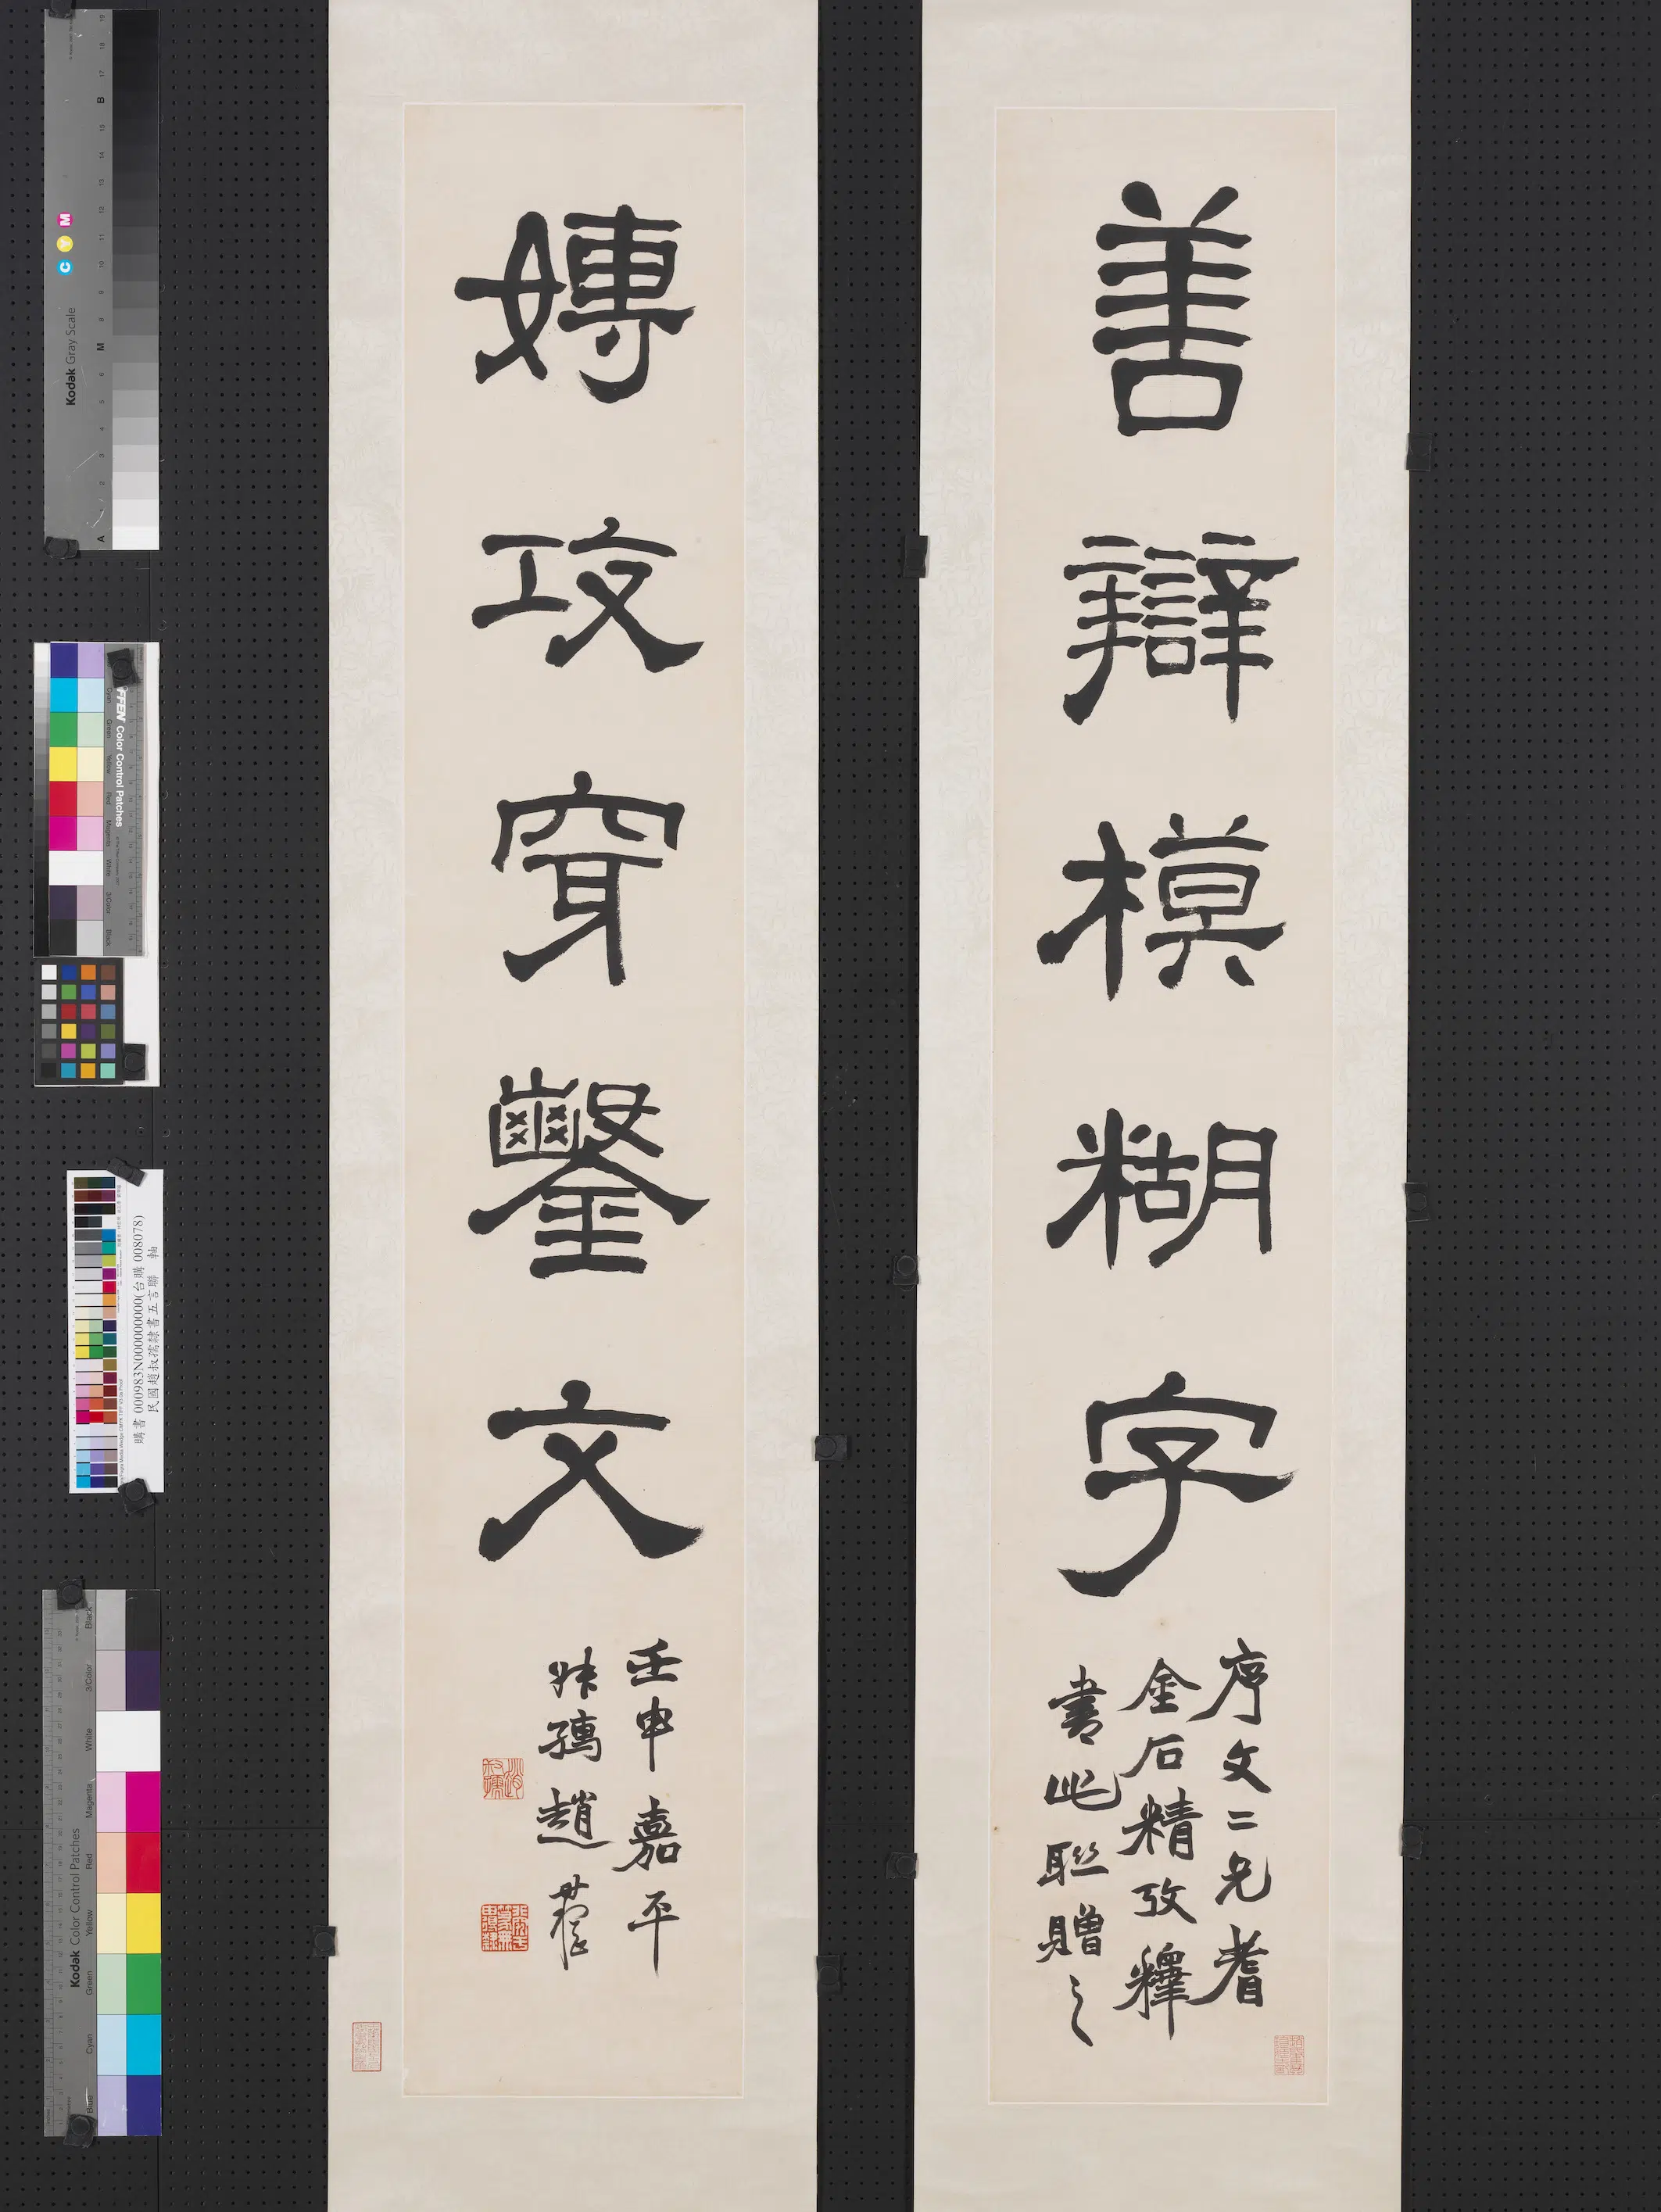 善辯模糊字
序文二兄耆
金石精攷釋
書此聯贈之
嫥攻穿鑿文
壬申嘉平
叔孺趙
Kodak Gray Scale
C Y M
A 1 2 3 4 5 6 M 8 9 10 11 12 13 14 15 B 17 18 19
FFEN Color Control Patches
Cyan Green Yellow Red Magenta White 3/Color Black
民國趙叔孺隸書五言聯 軸
Kodak Color Control Patches
Blue Cyan Green Yellow Red Magenta White 3/Color Black